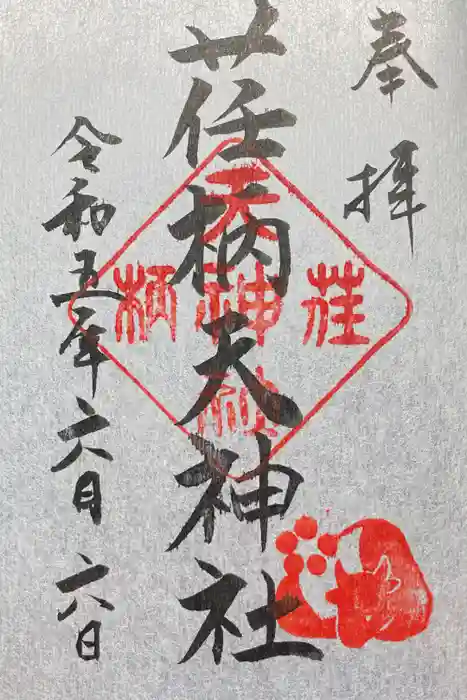 奉拝
荏柄天神社
荏柄天神社
令和五年六月六日